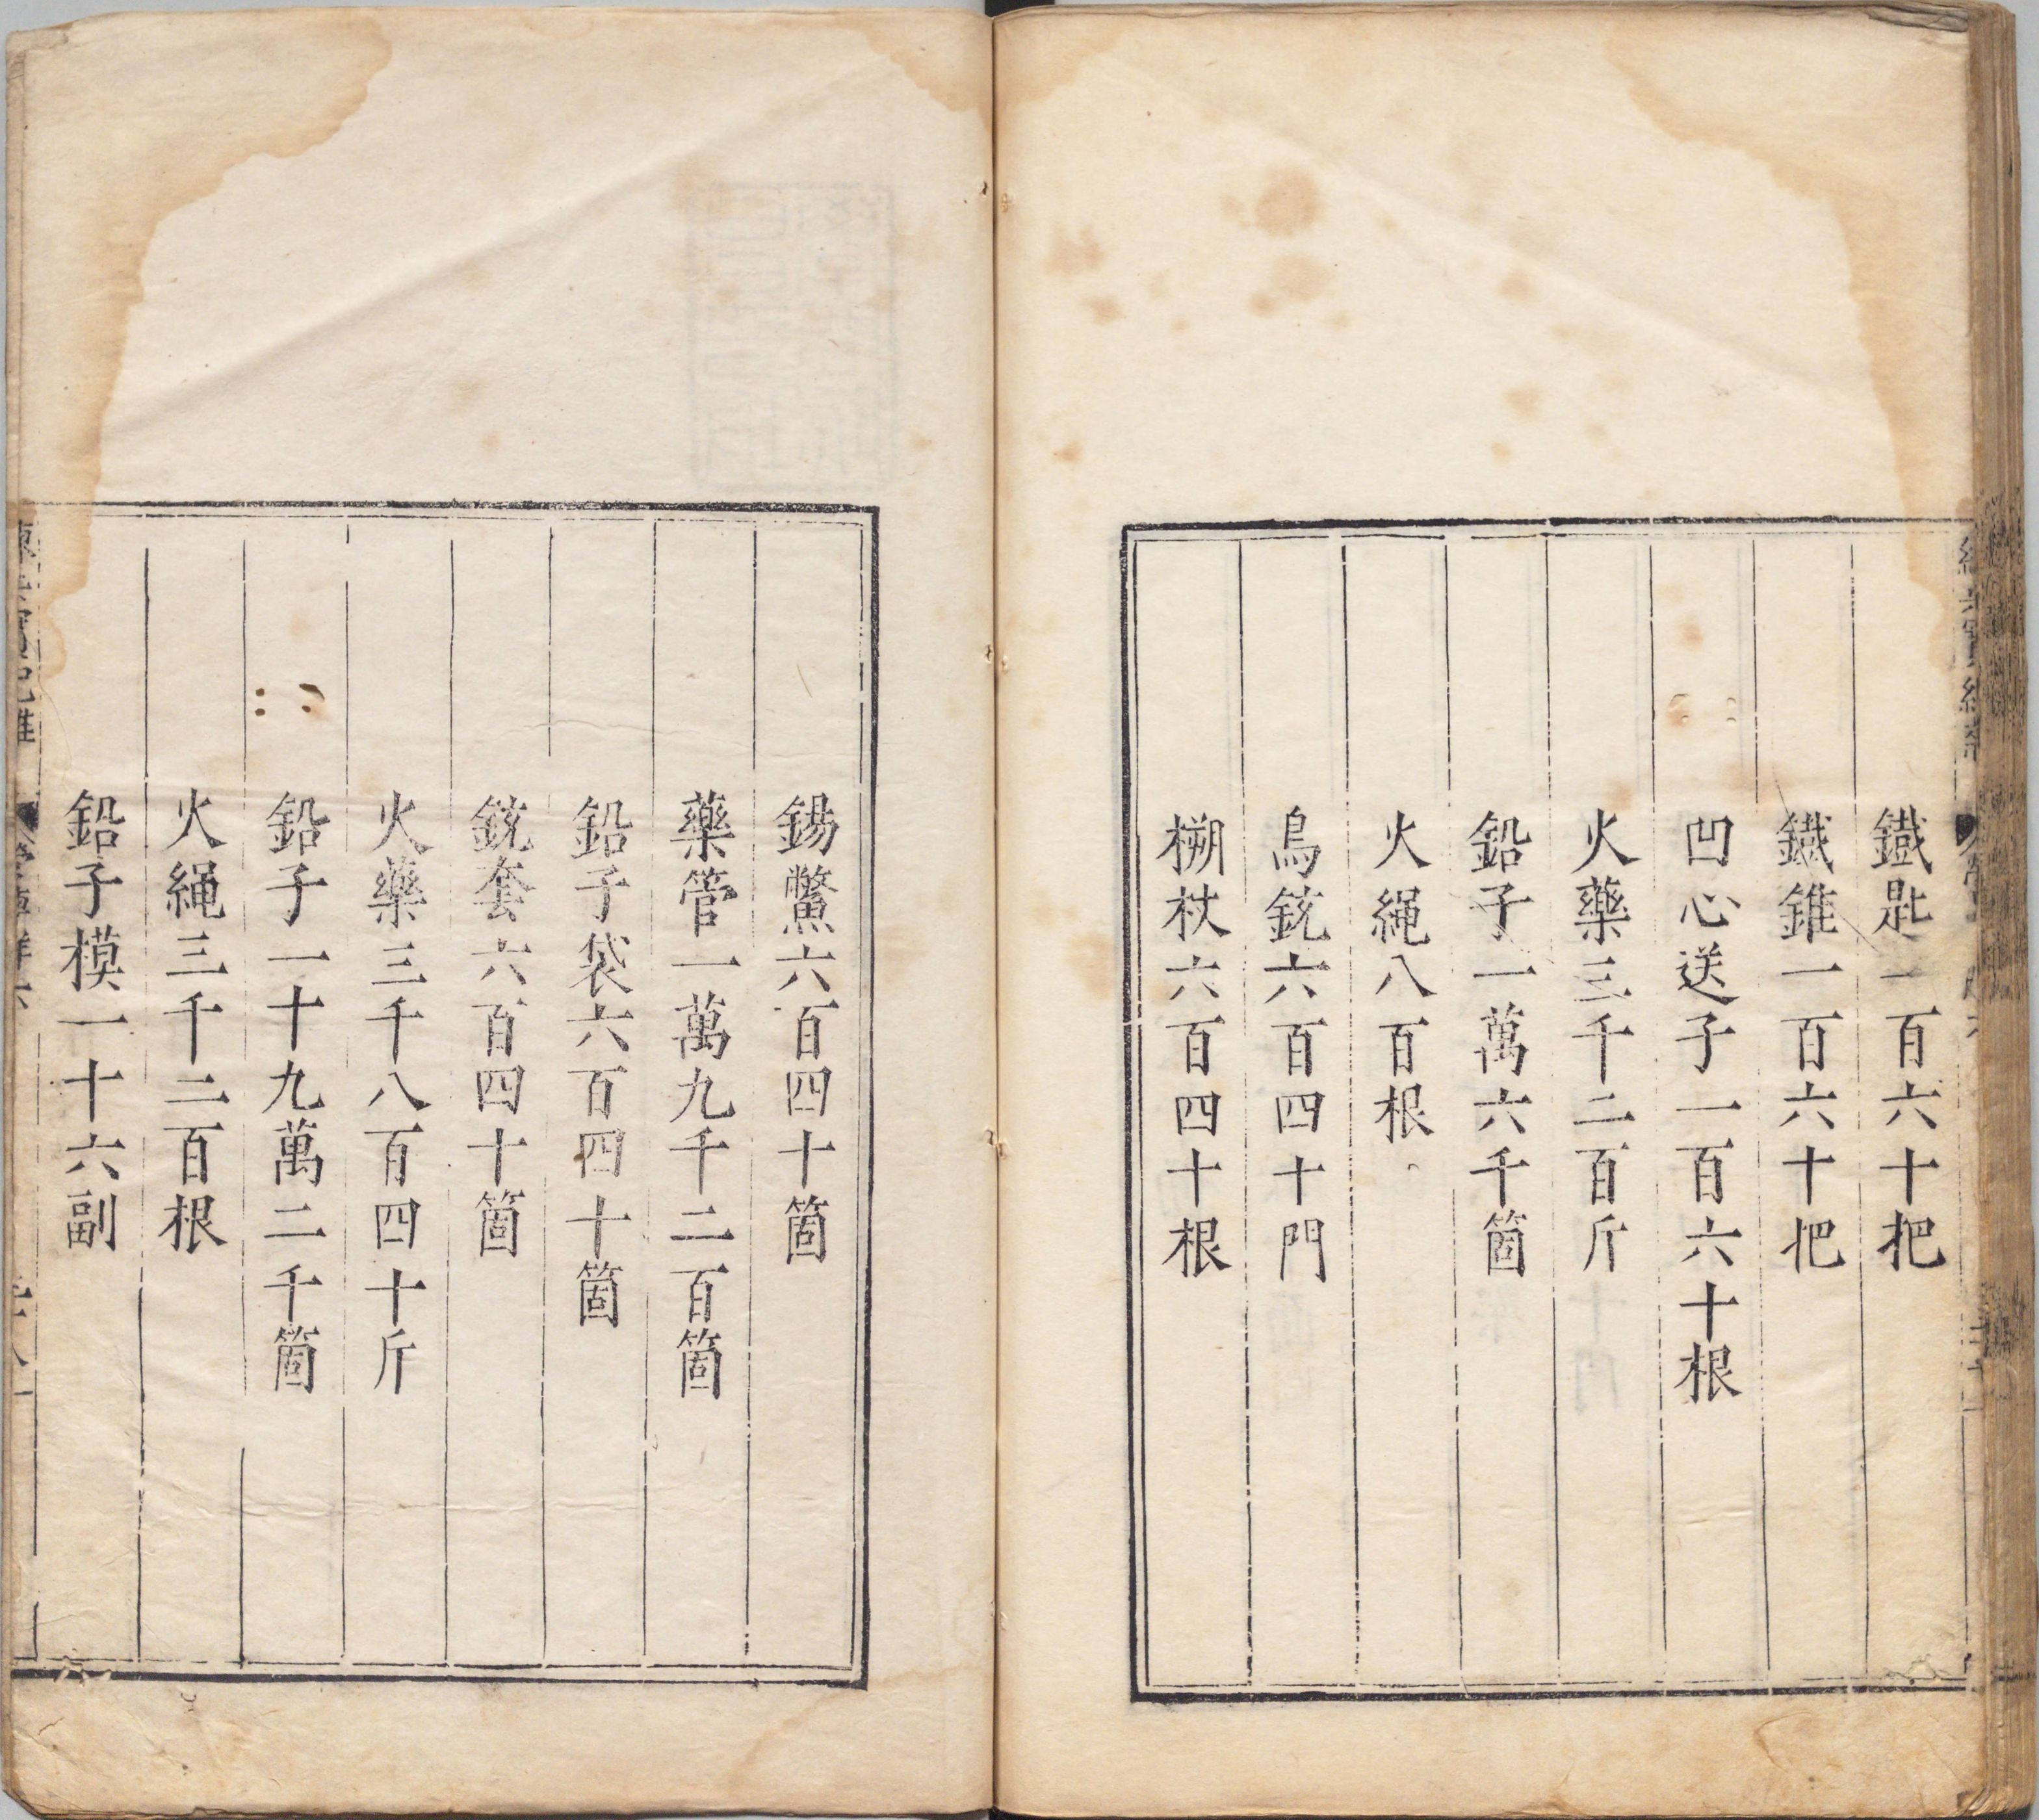 鐵匙一百六十把
鐵錐一百六十把
凹心送子一百六十根
火藥三千二百斤
鉛子一萬六千箇
火繩八百根
鳥銃六百四十門
搠杖六百四十根
錫鱉六百四十箇
藥管一萬九千二百箇
鉛子袋六百四十箇
銃套六百四十箇
火藥三千八百四十斤
鉛子一十九萬二千箇
火繩三千二百根
鉛子模一十六副